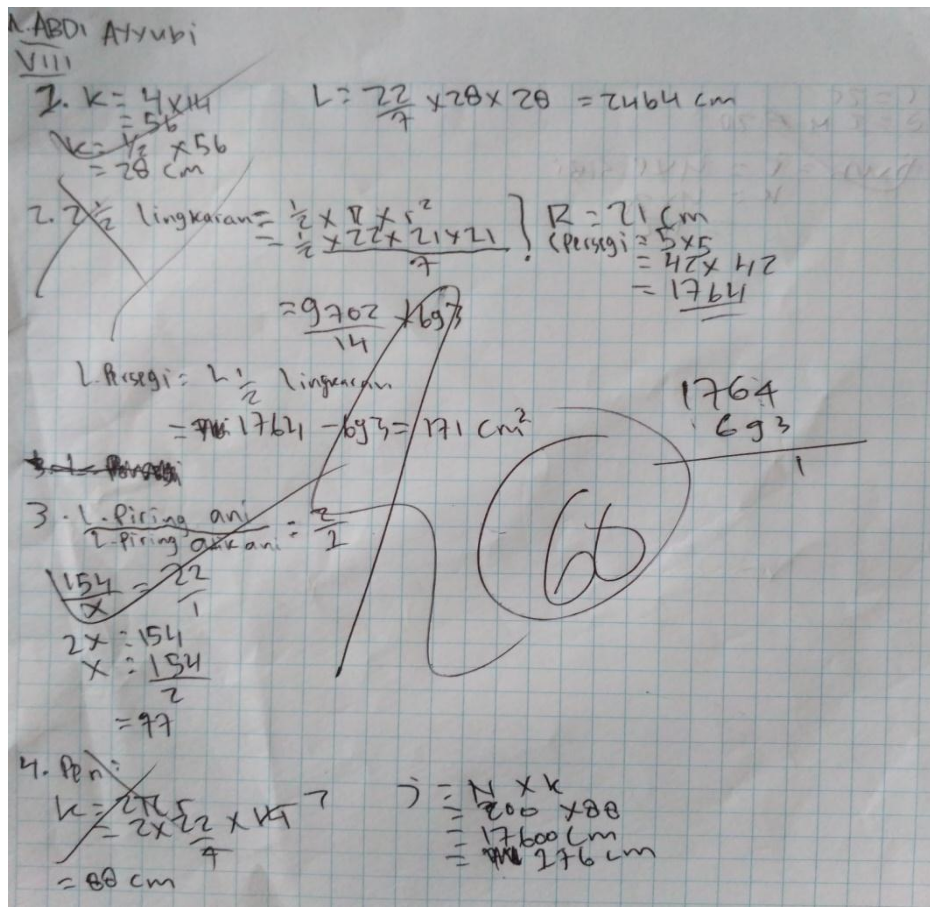 ABDI Ayyubi
VIII
1. K = 4 x 14
= 56
K = 1/2 x 56
= 28 cm
L = 22/7 x 28 x 28 = 2464 cm
2. 2 1/2 lingkaran = 1/2 x π x r²
= 1/2 x 22 x 21 x 21 / 7
= 9702/14 693
R = 21 cm
(Persegi = 5x5
= 42 x 42
= 1764
L. Persegi = L 1/2 lingkaran
= 1764 - 693 = 171 cm²
1764
693
1
3. L. Piring ani / L. Piring ani = 2/1
154/x = 22/1
2x = 154
x = 154/2
= 77
4. Pen:
K = 2πr
= 2 x 22/7 x 14
= 88 cm
J = N x K
= 200 x 88
= 17600 cm
= 176 cm
60